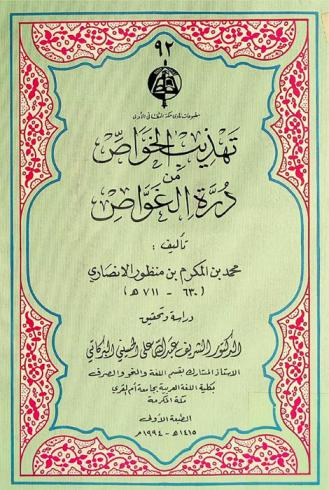 ٩٢
مطبوعات نادي مكة الثقافي الأدبي
تهذيب الخواص
من
درة الغواص
تأليف :
محمد بن المكرم بن منظور الأنصاري
(٦٣٠ - ٧١١ هـ)
دراسة وتحقيق
الدكتور الشريف عبدالله علي الحسيني البركاتي
الأستاذ المشارك بقسم اللغة والنحو والصرف
بكلية اللغة العربية بجامعة أم القرى
مكة المكرمة
الطبعة الأولى
١٤١٥هـ - ١٩٩٤م